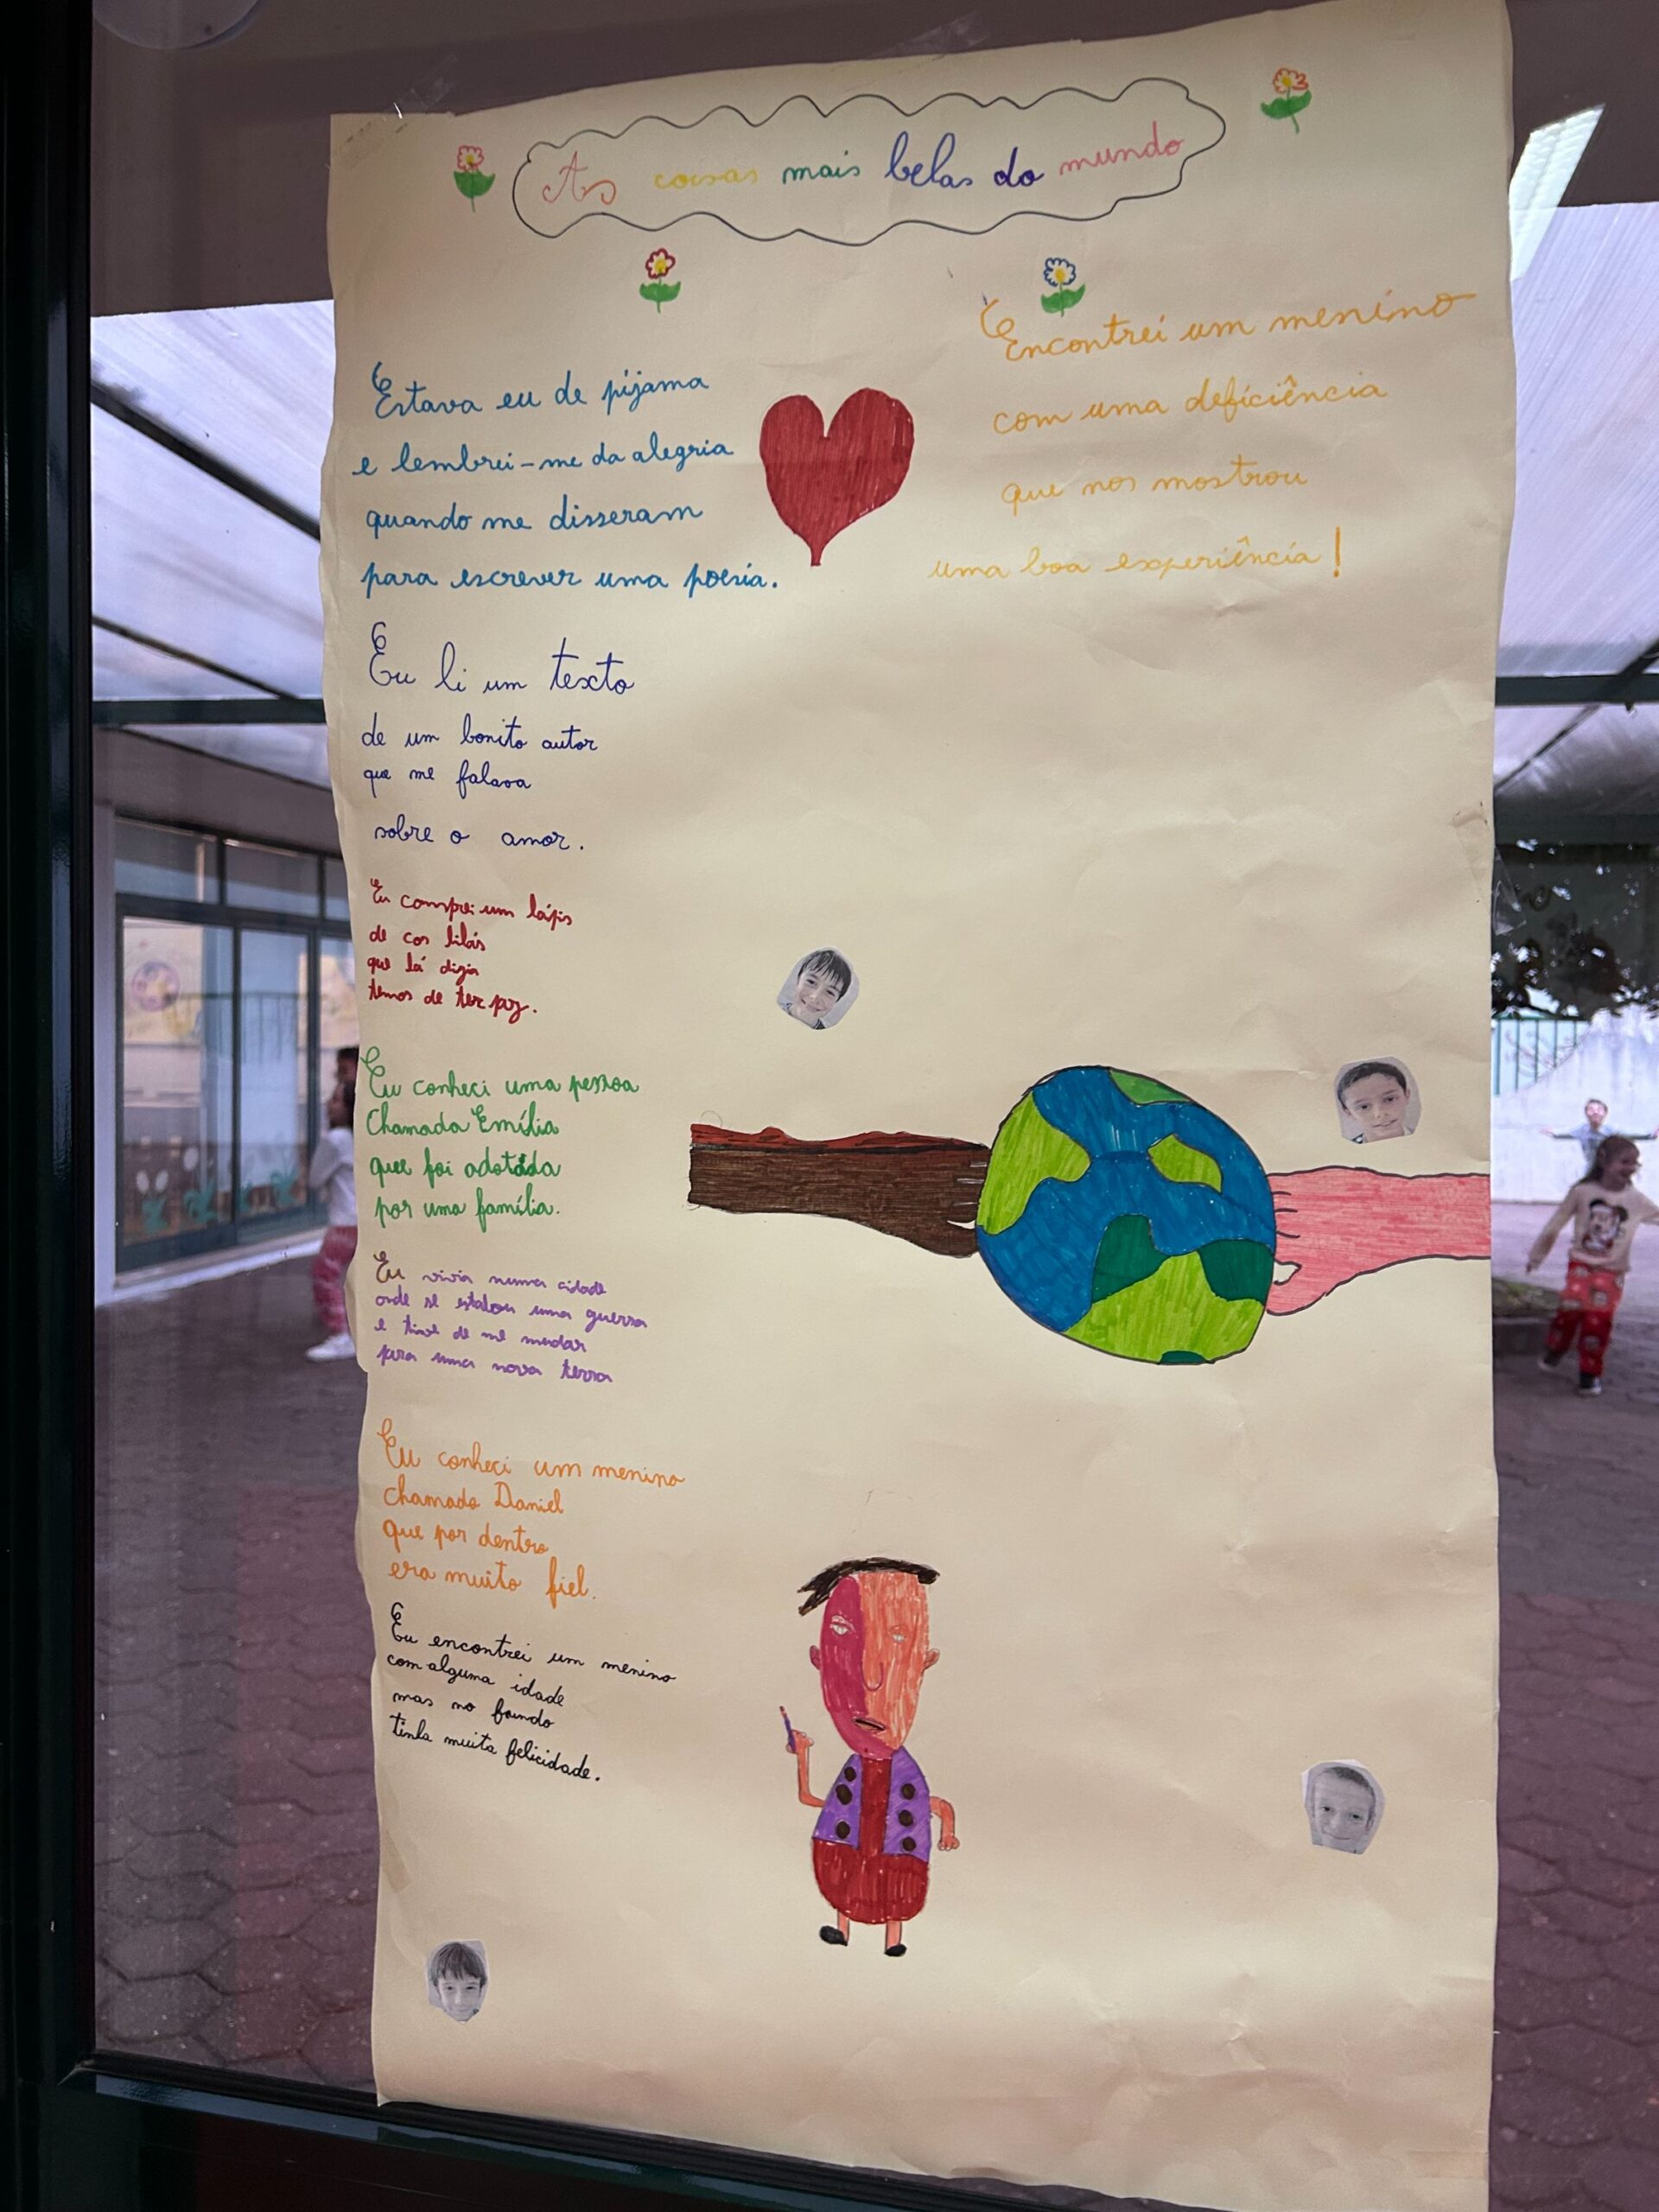 As coisas mais belas do mundo
Estava eu de pijama
e lembrei-me da alegria
quando me disseram
para escrever uma poesia.
Eu li um texto
de um bonito autor
que me falava
sobre o amor.
Eu comprei um lápis
de cor lilás
que lá dizia
temos de ter paz.
Eu conheci uma pessoa
Chamada Emília
que foi adotada
por uma família.
Eu vivia numa cidade
onde se estalou uma guerra
e tive de me mudar
para uma nova terra
Eu conheci um menino
chamado Daniel
que por dentro
era muito fiel.
Eu encontrei um menino
com alguma idade
mas no fundo
tinha muita felicidade.
Encontrei um menino
com uma deficiência
que nos mostrou
uma boa experiência!